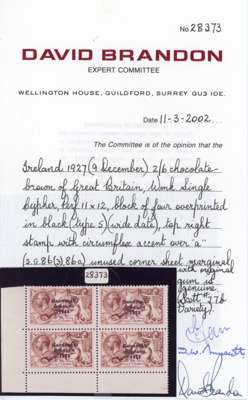 No 28373
DAVID BRANDON
EXPERT COMMITTEE
WELLINGTON HOUSE, GUILDFORD, SURREY GU3 1DE.
Date 11-3-2002
The Committee is of the opinion that the
Ireland 1927 (9 December) 2/6 chocolate-
brown of Great Britain Wmk Single
Cypher, Perf 11x12, block of four overprinted
in black (type 5) (wide date), top right
stamp with circumflex accent over "a"
(S.G. 86(3), 86a) unused corner sheet marginal
with original
gum is
genuine
28373
David Brandon